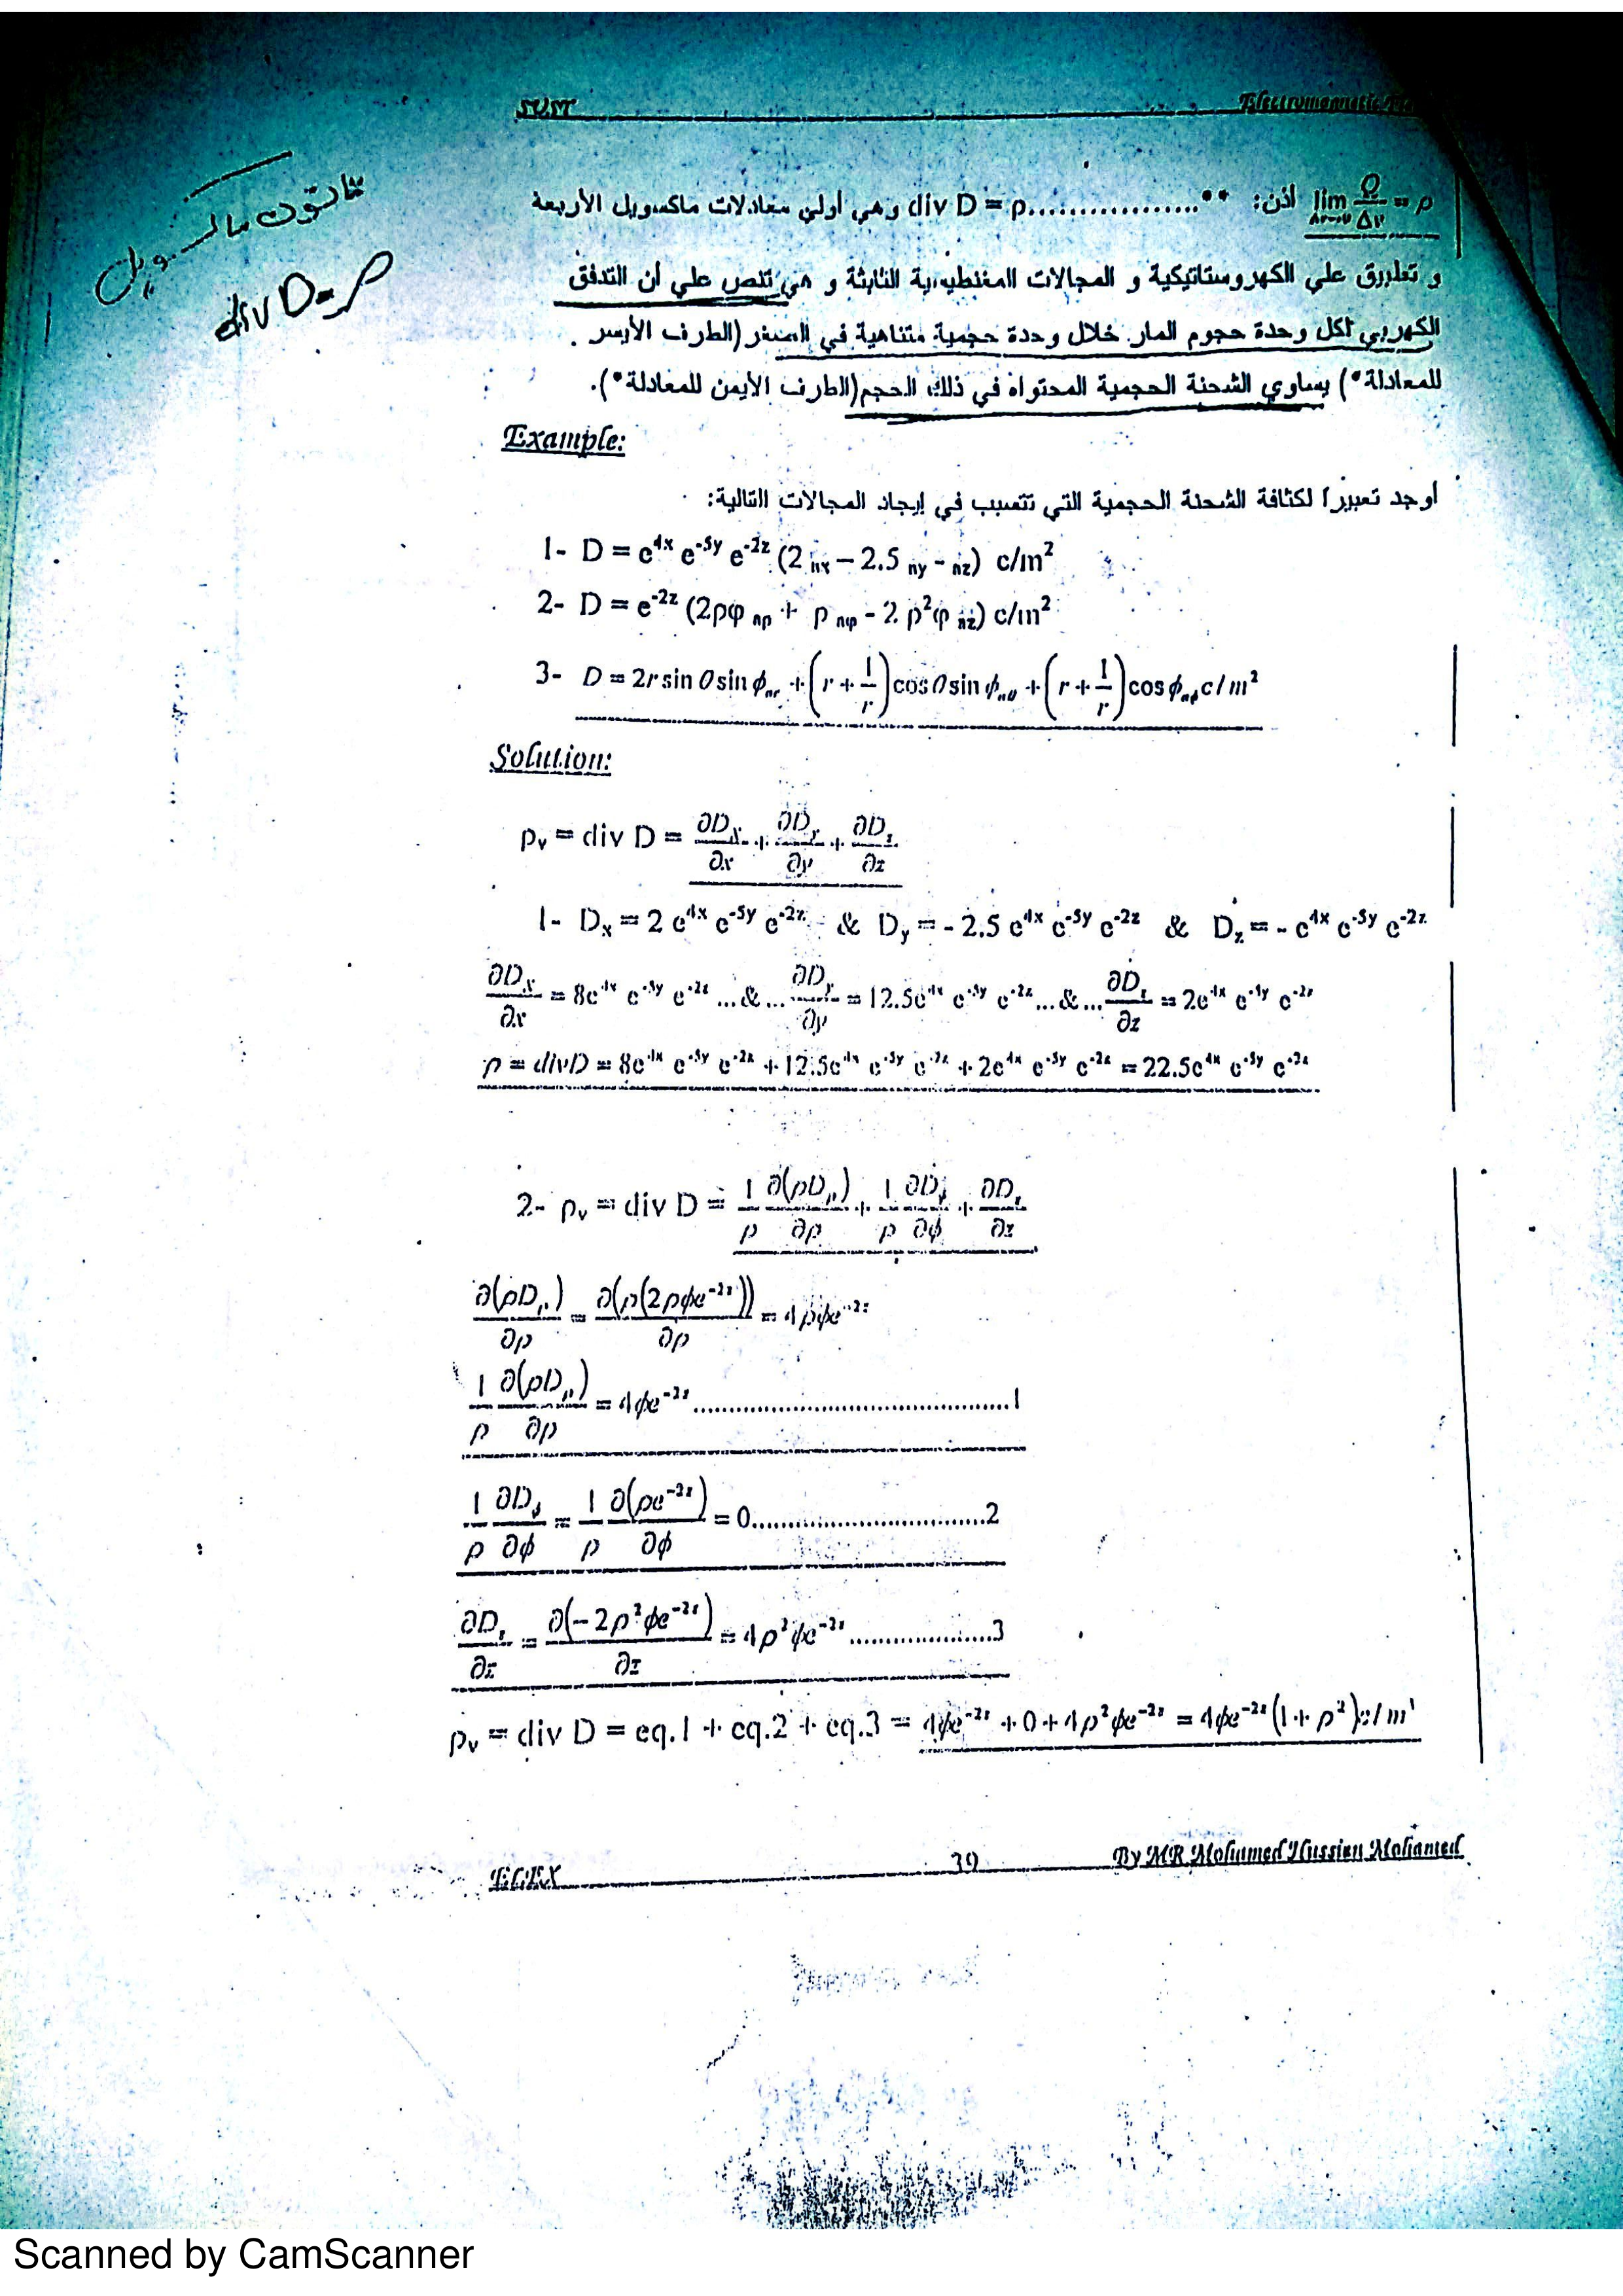 SUST Electromagnetic
قانون ماكسويل
div D = ρ
lim Δv→0 Q/Δv = ρ اذن: **.................div D = ρ وهي أولى معادلات ماكسويل الأربعة
و تطبق علي الكهروستاتيكية و المجالات المغنطيسية الثابتة و هي تنص علي أن التدفق
الكهربي لكل وحدة حجوم المار خلال وحدة حجمية متناهية في الصغر (الطرف الأيسر
للمعادلة*) يساوي الشحنة الحجمية المحتواه في ذلك الحجم(الطرف الأيمن للمعادلة*).
Example:
أوجد تعبيرا لكثافة الشحنة الحجمية التي تتسبب في إيجاد المجالات التالية:
1- D = e^4x e^-5y e^-2z (2 nx – 2.5 ny - nz) c/m²
2- D = e^-2z (2ρφ nρ + ρ nφ - 2 ρ²φ nz) c/m²
3- D = 2r sin θ sin ϕ nr + (r + 1/r) cos θ sin ϕ nθ + (r + 1/r) cos ϕ nϕ c/m²
Solution:
ρv = div D = ∂Dx/∂x + ∂Dy/∂y + ∂Dz/∂z
1- Dx = 2 e^4x e^-5y e^-2z & Dy = - 2.5 e^4x e^-5y e^-2z & Dz = - e^4x e^-5y e^-2z
∂Dx/∂x = 8e^4x e^-5y e^-2z ...&... ∂Dy/∂y = 12.5e^4x e^-5y e^-2z ...&... ∂Dz/∂z = 2e^4x e^-5y e^-2z
ρ = divD = 8e^4x e^-5y e^-2z + 12.5e^4x e^-5y e^-2z + 2e^4x e^-5y e^-2z = 22.5e^4x e^-5y e^-2z
2- ρv = div D = 1/ρ ∂(ρDρ)/∂ρ + 1/ρ ∂Dϕ/∂ϕ + ∂Dz/∂z
∂(ρDρ)/∂ρ = ∂(ρ(2ρϕe^-2z))/∂ρ = 4ρϕe^-2z
1/ρ ∂(ρDρ)/∂ρ = 4ϕe^-2z ............................................1
1/ρ ∂Dϕ/∂ϕ = 1/ρ ∂(ρe^-2z)/∂ϕ = 0................................2
∂Dz/∂z = ∂(-2ρ²ϕe^-2z)/∂z = 4ρ²ϕe^-2z ....................3
ρv = div D = eq.1 + eq.2 + eq.3 = 4ϕe^-2z + 0 + 4ρ²ϕe^-2z = 4ϕe^-2z (1 + ρ²) c/m³
ECEX 39 By MR Mohamed Hussien Mohamed
Scanned by CamScanner